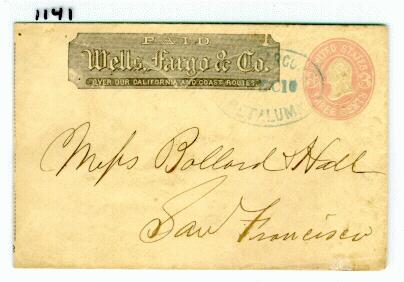 1141
PAID
Wells, Fargo & Co.
OVER OUR CALIFORNIA AND COAST ROUTES.
RGO
C 10
ETALUM
UNITED STATES
THREE CENTS
Mess Bollard & Hall
San Francisco